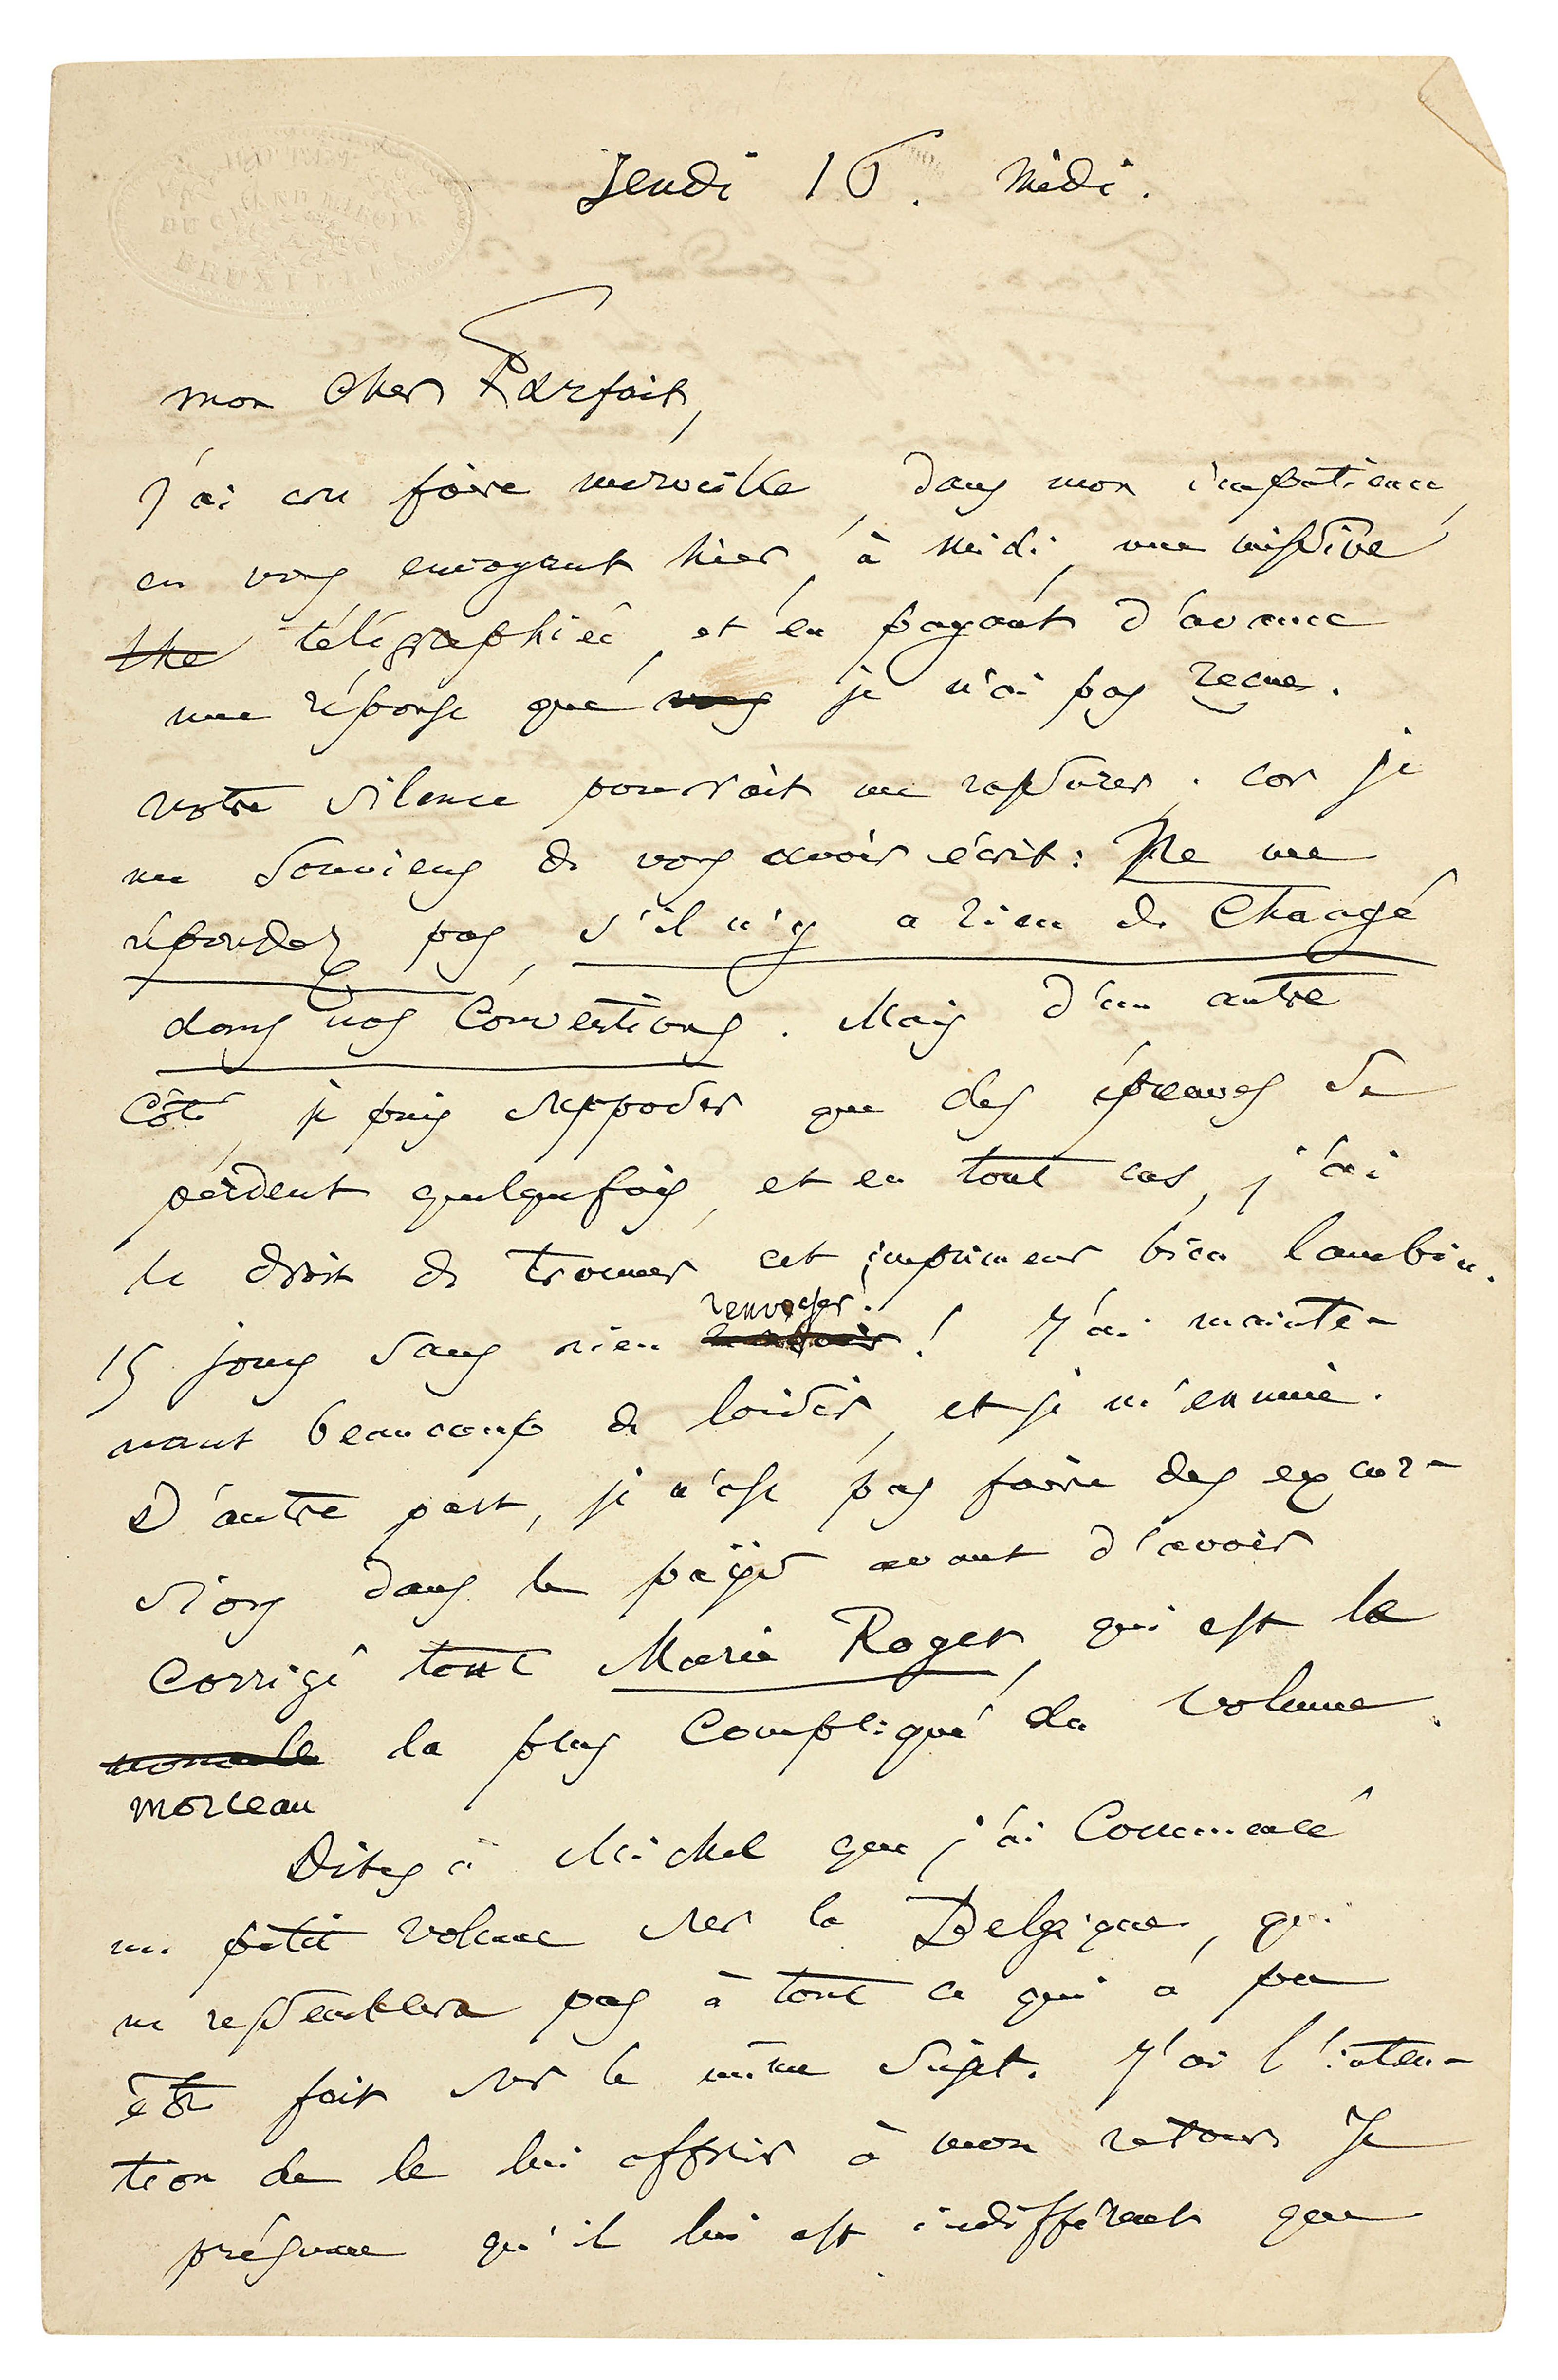 HOTEL
DU GRAND MIROIR
BRUXELLES
Jeudi 16. midi.
mon cher Parfait,
j'ai cru faire merveille, dans mon impatience,
en vous envoyant hier, à midi, une missive
télégraphiée, et en payant d'avance
une réponse que vous je n'ai pas reçue.
Votre silence pourrait me rassurer; car je
me souviens de vous avoir écrit: Ne me
répondez pas, s'il n'y a rien de changé
dans nos conventions. Mais d'un autre
côté, je puis supposer que des épreuves se
perdent quelquefois, et en tout cas, j'ai
le droit de trouver cet imprimeur bien lambin.
renvoyer
15 jours sans rien ! J'ai mainte-
nant beaucoup de loisir, et je m'ennuie.
D'autre part, je n'ose pas faire des excur-
sions dans le païs avant d'avoir
corrigé tout Marie Roget, qui est le
la plus compliqué du volume.
morceau
Dites à Michel que j'ai commencé
un petit volume sur la Belgique, qui
ne ressemblera pas à tout ce qui a pu
être fait sur le même sujet. J'ai l'inten-
tion de le lui offrir à mon retour. Je
présume qu'il lui est indifférent que